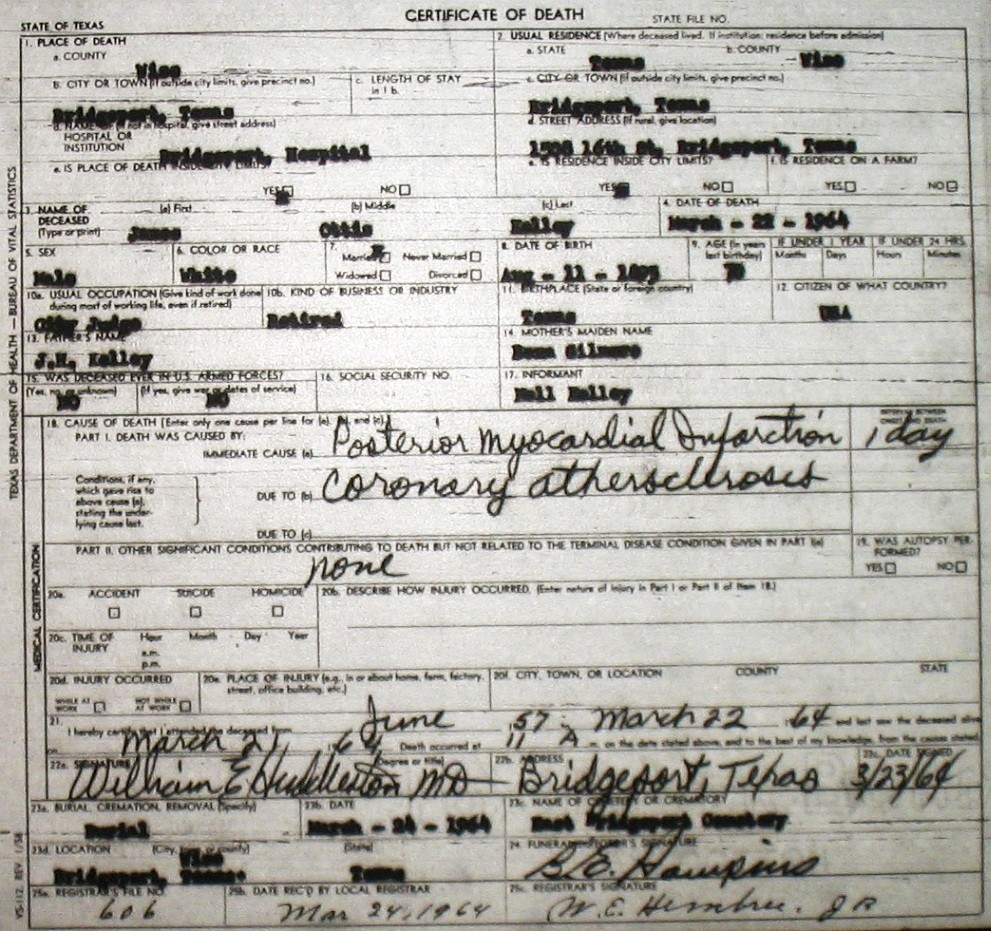 CERTIFICATE OF DEATH
STATE OF TEXAS
STATE FILE NO.
1. PLACE OF DEATH
a. COUNTY
Wise
2. USUAL RESIDENCE (Where deceased lived. If institution: residence before admission)
a. STATE
Texas
b. COUNTY
Wise
b. CITY OR TOWN (If outside city limits, give precinct no.)
Bridgeport, Texas
c. LENGTH OF STAY
in 1 b.
c. CITY OR TOWN (If outside city limits, give precinct no.)
Bridgeport, Texas
d. NAME OF (If not in hospital, give street address)
HOSPITAL OR
INSTITUTION
Bridgeport, Hospital
d. STREET ADDRESS (If rural, give location)
16th St, Bridgeport, Texas
e. IS PLACE OF DEATH INSIDE CITY LIMITS?
YES NO
e. IS RESIDENCE INSIDE CITY LIMITS?
YES NO
f. IS RESIDENCE ON A FARM?
YES NO
3. NAME OF
DECEASED
(Type or print)
(a) First
James
(b) Middle
Ottis
(c) Last
Kelley
4. DATE OF DEATH
March - 22 - 1964
5. SEX
Male
6. COLOR OR RACE
White
7.
Married Never Married
Widowed Divorced
8. DATE OF BIRTH
Aug - 11 -
9. AGE (In years
last birthday)
70
IF UNDER 1 YEAR
Months Days
IF UNDER 24 HRS.
Hours Minutes
10a. USUAL OCCUPATION (Give kind of work done
during most of working life, even if retired)
City Judge
10b. KIND OF BUSINESS OR INDUSTRY
Retired
11. BIRTHPLACE (State or foreign country)
Texas
12. CITIZEN OF WHAT COUNTRY?
USA
13. FATHER'S NAME
J.H. Kelley
14. MOTHER'S MAIDEN NAME
Gilmore
15. WAS DECEASED EVER IN U.S. ARMED FORCES?
(Yes, no, or unknown)
NO
(If yes, give war or dates of service)
NO
16. SOCIAL SECURITY NO.
17. INFORMANT
Kelley
18. CAUSE OF DEATH [Enter only one cause per line for (a), (b), and (c)]
PART I. DEATH WAS CAUSED BY:
IMMEDIATE CAUSE (a)
Posterior Myocardial Infarction
INTERVAL BETWEEN
ONSET AND DEATH
1 day
Conditions, if any,
which gave rise to
above cause (a),
stating the under-
lying cause last.
DUE TO (b)
Coronary athersclerosis
DUE TO (c)
PART II. OTHER SIGNIFICANT CONDITIONS CONTRIBUTING TO DEATH BUT NOT RELATED TO THE TERMINAL DISEASE CONDITION GIVEN IN PART I(a)
none
19. WAS AUTOPSY PER-
FORMED?
YES NO
20a.
ACCIDENT SUICIDE HOMICIDE
20b. DESCRIBE HOW INJURY OCCURRED. (Enter nature of injury in Part I or Part II of Item 18.)
20c. TIME OF
INJURY
Hour Month Day Year
a.m.
p.m.
20d. INJURY OCCURRED
WHILE AT
WORK
NOT WHILE
AT WORK
20e. PLACE OF INJURY (e.g., in or about home, farm, factory,
street, office building, etc.)
20f. CITY, TOWN, OR LOCATION COUNTY STATE
21.
I hereby certify that I attended the deceased from June 57 - March 22 64 and last saw the deceased alive
on March 21 1964 Death occurred at 11 A m. on the date stated above, and to the best of my knowledge, from the causes stated.
22a. SIGNATURE
(Degree or title)
William E Huddleston MD
22b. ADDRESS
Bridgeport, Texas
22c. DATE SIGNED
3/23/64
23a. BURIAL, CREMATION, REMOVAL (Specify)
Burial
23b. DATE
March - 24 - 1964
23c. NAME OF CEMETERY OR CREMATORY
East Bridgeport Cemetery
23d. LOCATION (City, town, or county) (State)
Wise
Bridgeport, Texas Texas
24. FUNERAL DIRECTOR'S SIGNATURE
B.E. Hawkins
25a. REGISTRAR'S FILE NO.
606
25b. DATE REC'D BY LOCAL REGISTRAR
Mar 24, 1964
25c. REGISTRAR'S SIGNATURE
W. E. Hembree. JR
TEXAS DEPARTMENT OF HEALTH — BUREAU OF VITAL STATISTICS
MEDICAL CERTIFICATION
VS-112 REV. 1/58